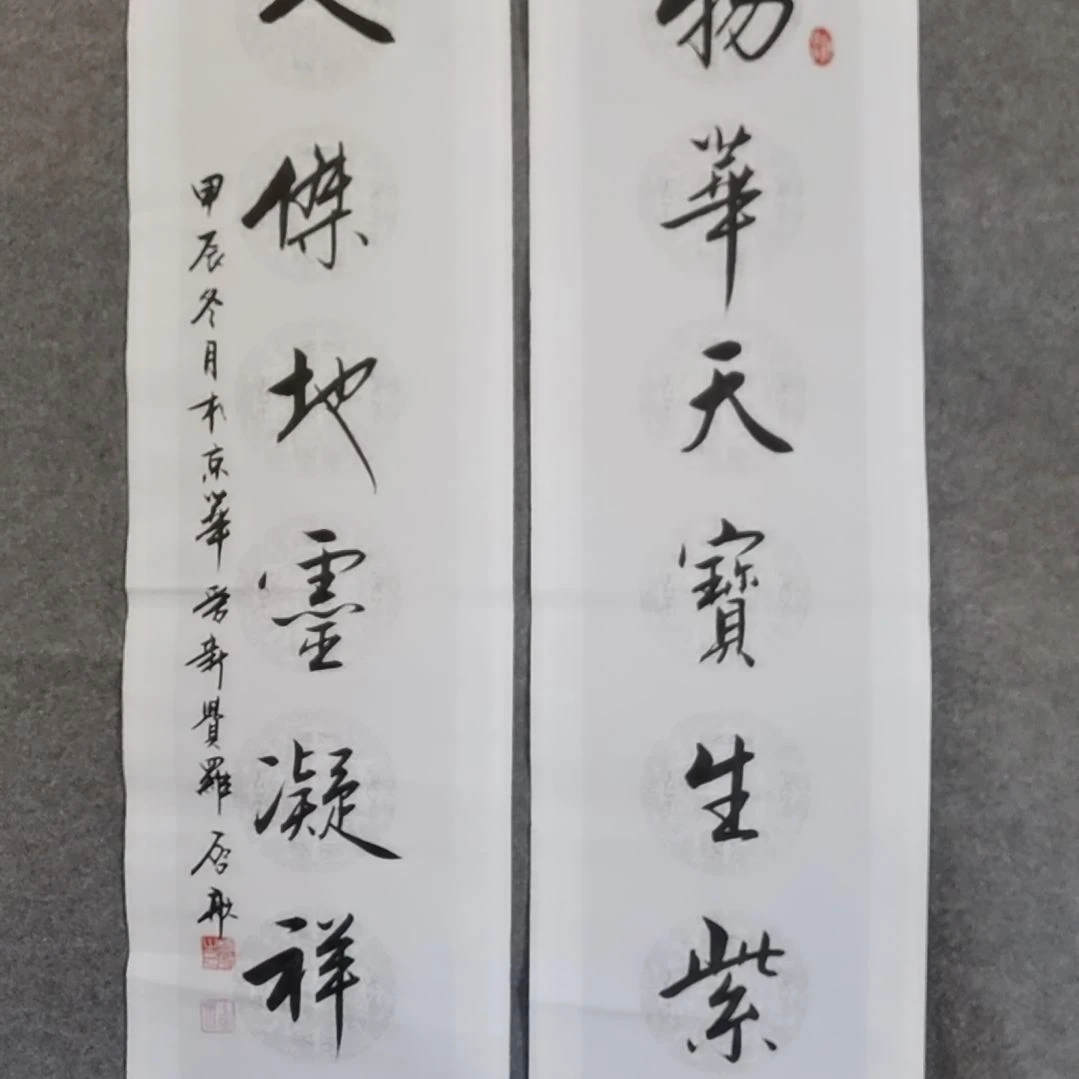 物華天寶生紫
人傑地靈凝祥
甲辰冬月於京華愛新覺羅啟